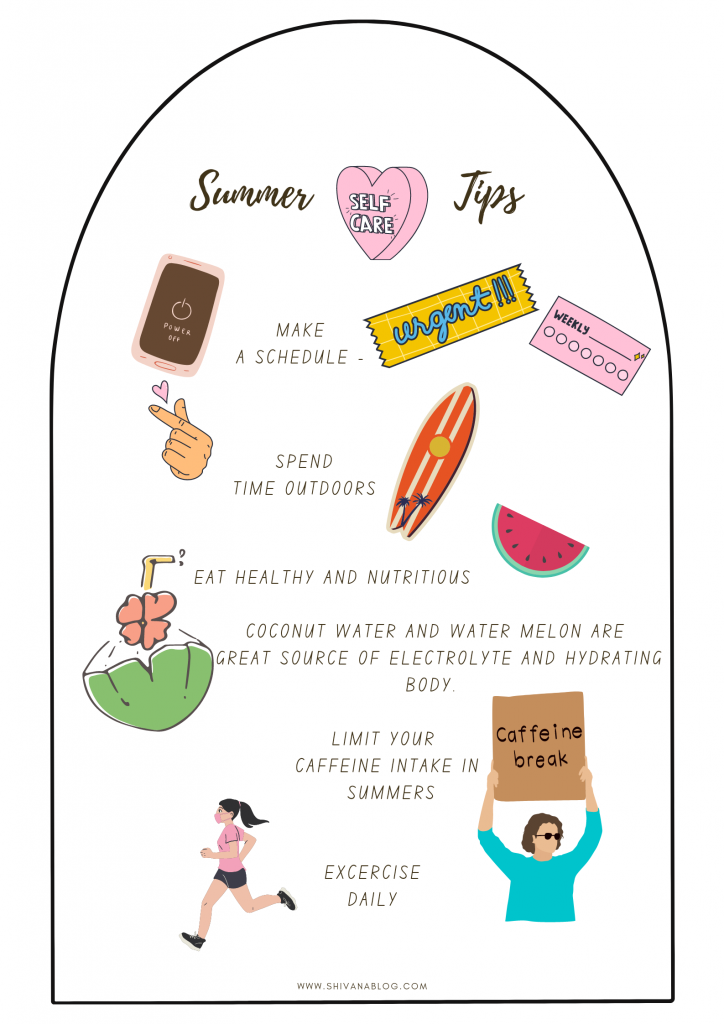 Summer
SELF
CARE
Tips
POWER
OFF
MAKE
A SCHEDULE -
urgent!!!
WEEKLY
SPEND
TIME OUTDOORS
EAT HEALTHY AND NUTRITIOUS
COCONUT WATER AND WATER MELON ARE
GREAT SOURCE OF ELECTROLYTE AND HYDRATING
BODY.
LIMIT YOUR
CAFFEINE INTAKE IN
SUMMERS
Caffeine
break
EXCERCISE
DAILY
WWW.SHIVANABLOG.COM